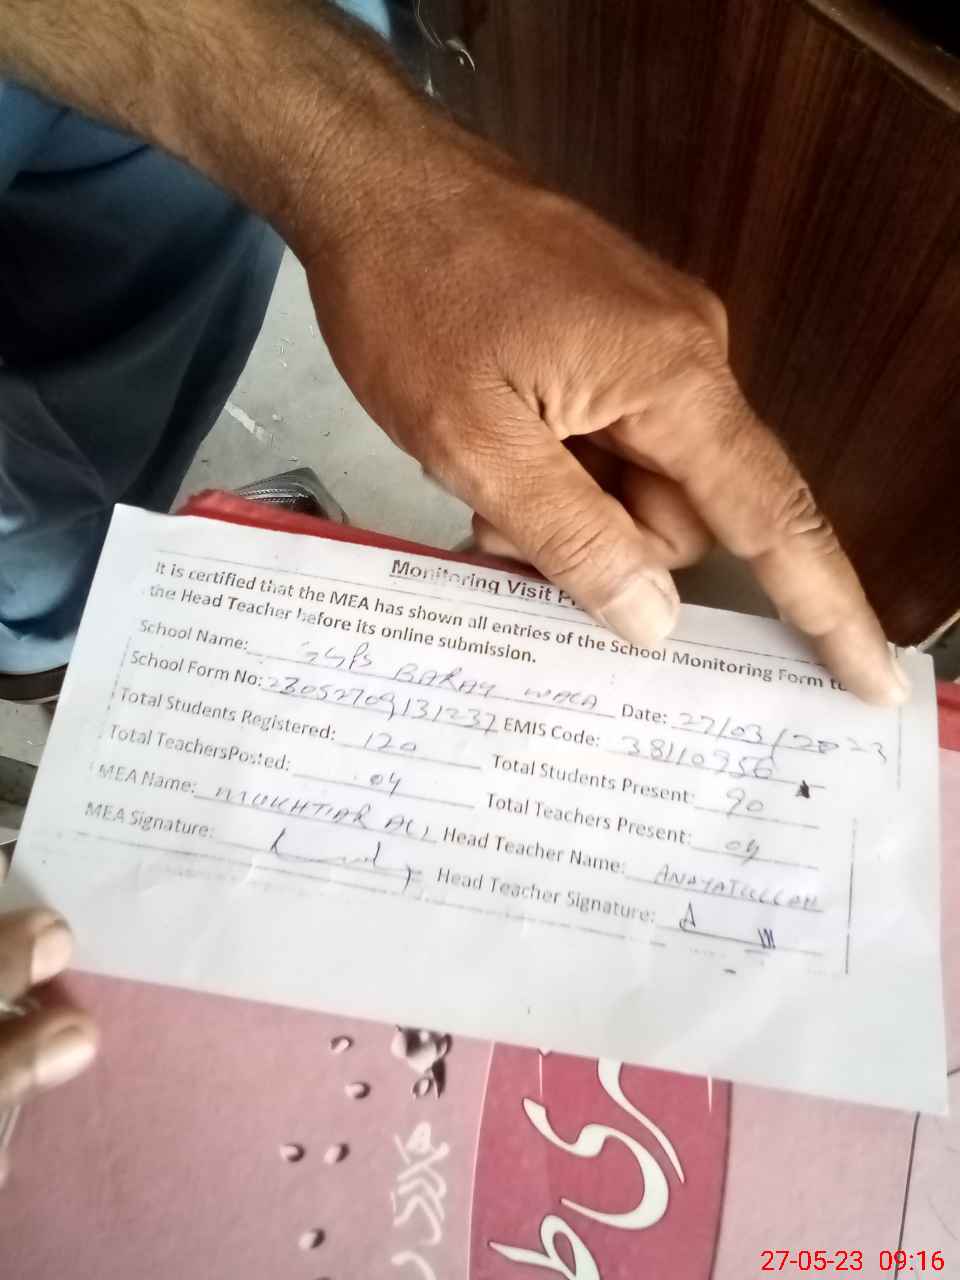 Monitoring Visit
It is certified that the MEA has shown all entries of the School Monitoring Form to
the Head Teacher before its online submission.
School Name: GGPS BARAY WALA Date: 27/03/2023
School Form No: 23052709131237 EMIS Code: 38110356
Total Students Registered: 120 Total Students Present: 90
Total TeachersPosted: 04 Total Teachers Present: 04
MEA Name: MUKHTIAR ALI Head Teacher Name: ANAYATULLAH
MEA Signature: Head Teacher Signature:
27-05-23 09:16